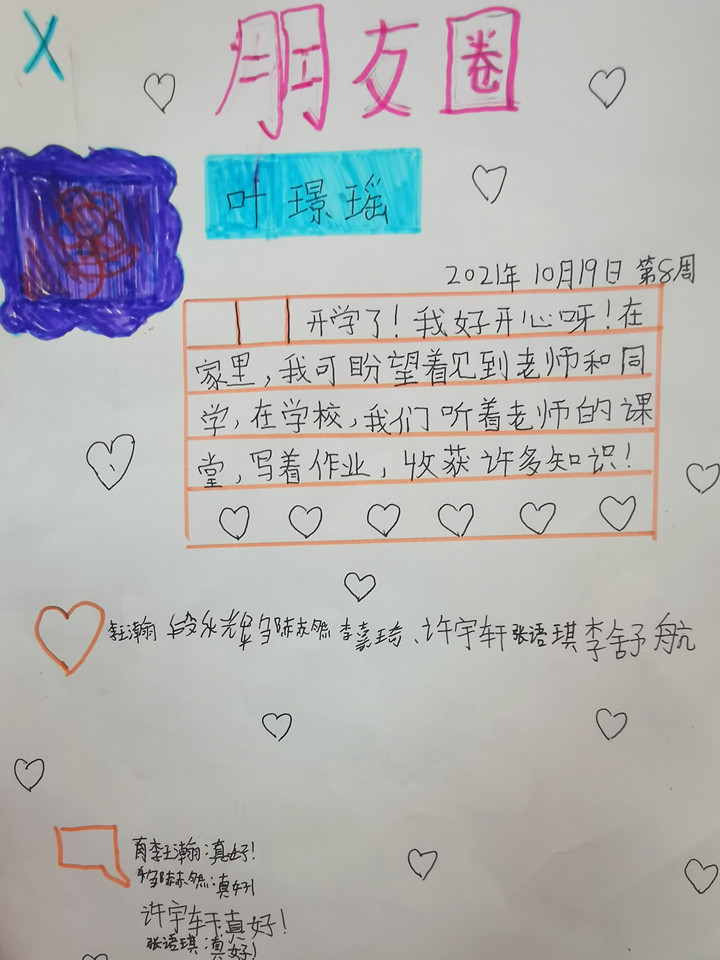 X
朋友圈
叶璟瑶
2021年10月19日 第8周
开学了！我好开心呀！在
家里，我可盼望着见到老师和同
学，在学校，我们听着老师的课
堂，写着作业，收获许多知识！
李嘉琦、许宇轩 张语琪 李舒航
真好！
真好！
许宇轩真好！
张语琪：真好！